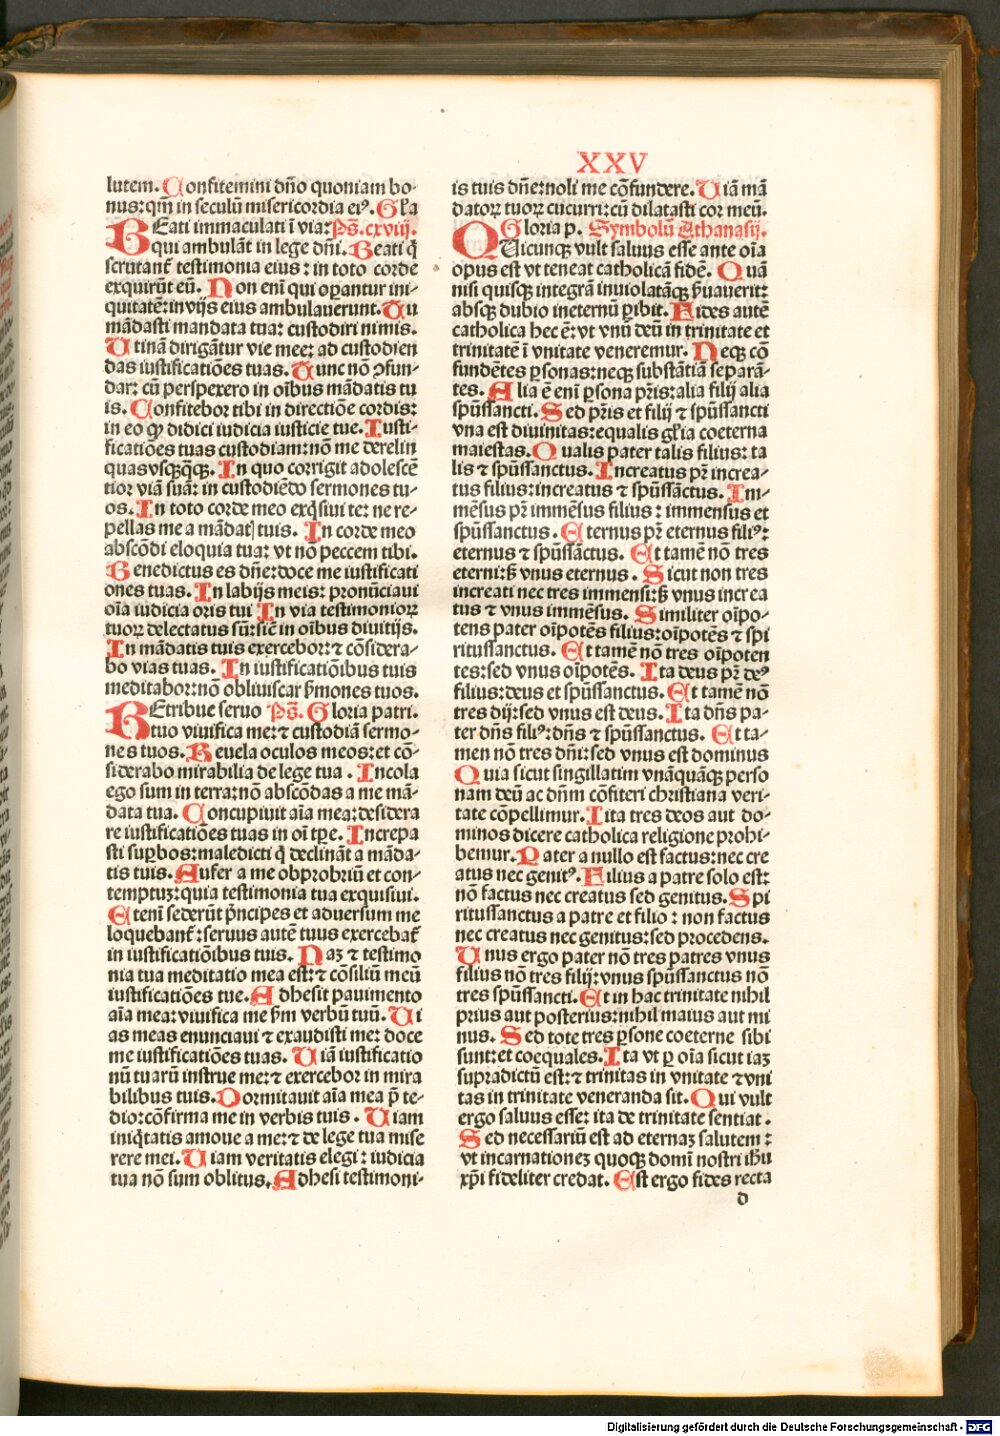 XXV
lutem. Confitemini dño quoniam bo-
nus: qm̃ in seculũ misericordia ei⁹. Gl̃a
BEati immaculati ĩ via: Ps̃. cxviij.
qui ambulãt in lege dñi. Beati q̃
scrutant̃ testimonia eius: in toto corde
exquirũt eũ. Non enĩ qui oꝑantur ini-
quitatẽ: in vijs eius ambulauerunt. Tu
mãdasti mandata tua: custodiri nimis.
Utinã dirigãtur vie mee: ad custodien
das iustificatiões tuas. Tunc nõ ↄfun-
dar: cũ perspexero in oĩbus mãdatis tu
is. Confitebor tibi in directiõe cordis:
in eo ꝙ didici iudicia iusticie tue. Iusti-
ficatiões tuas custodiam: nõ me derelin
quas vsq̃q̃q̃. In quo corrigit adolescẽ
tior viã suã: in custodiẽdo sermones tu-
os. In toto corde meo exq̃siui te: ne re-
pellas me a mãdat| tuis. In corde meo
abscõdi eloquia tua: vt nõ peccem tibi.
Benedictus es dñe: doce me iustificati
ones tuas. In labijs meis: pronũciaui
oĩa iudicia oris tui In via testimonioꝝ
tuoꝝ delectatus sũ: siĉ in oĩbus diuitijs.
In mãdatis tuis exercebor: ⁊ cõsidera-
bo vias tuas. In iustificatiõibus tuis
meditabor: nõ obliuiscar s̃mones tuos.
REtribue seruo Ps̃. Gloria patri.
tuo viuifica me: ⁊ custodiã sermo-
nes tuos. Reuela oculos meos: et cõ-
siderabo mirabilia de lege tua. Incola
ego sum in terra: nõ abscõdas a me mã-
data tua. Concupiuit aĩa mea: desidera
re iustificatiões tuas in oĩ tꝑe. Increpa
sti suꝑbos: maledicti q̃ declinãt a mãda-
tis tuis. Aufer a me obprobriũ et con-
temptuꝫ: quia testimonia tua exquisiui.
Etenĩ sederũt p̃ncipes et aduersum me
loquebant̃: seruus autẽ tuus exercebat̃
in iustificatiõibus tuis. Naꝫ ⁊ testimo
nia tua meditatio mea est: ⁊ cõsiliũ meũ
iustificatiões tue. Adhesit pauimento
aĩa mea: viuifica me s̃m verbũ tuũ. Ui
as meas enunciaui ⁊ exaudisti me: doce
me iustificatiões tuas. Uiã iustificatio
nũ tuarũ instrue me: ⁊ exercebor in mira
bilibus tuis. Dormitauit aĩa mea p̃ te-
dio: cõfirma me in verbis tuis. Uiam
iniq̃tatis amoue a me: ⁊ de lege tua mise
rere mei. Uiam veritatis elegi: iudicia
tua nõ sum oblitus. Adhesi testimoni-
is tuis dñe: noli me cõfundere. Uiã mã
datoꝝ tuoꝝ cucurri: cũ dilatasti cor meũ.
Gloria p. Symbolũ Athanasij.
QUicunqꝫ vult saluus esse ante oĩa
opus est vt teneat catholicã fidẽ. Quã
nisi quisqꝫ integrã inuiolatãqꝫ s̃uauerit:
absqꝫ dubio ineternũ ꝑibit. Fides autẽ
catholica hec ẽ: vt vnũ deũ in trinitate et
trinitatẽ ĩ vnitate veneremur. Neqꝫ cõ
fundẽtes ꝑsonas: neqꝫ substãtiã separã-
tes. Alia ẽ enĩ ꝑsona pr̃is: alia filij alia
spũssancti. Sed pr̃is et filij ⁊ spũssancti
vna est diuinitas: equalis gl̃ia coeterna
maiestas. Qualis pater talis filius: ta
lis ⁊ spũssanctus. Increatus pr̃ increa-
tus filius: increatus ⁊ spũssãctus. Im-
mẽsus pr̃ immẽsus filius: immensus et
spũssanctus. Eternus pr̃ eternus fili⁹:
eternus ⁊ spũssãctus. Et tamẽ nõ tres
eterni: s̃ vnus eternus. Sicut non tres
increati nec tres immensi: s̃ vnus increa
tus ⁊ vnus immẽsus. Similiter oĩpo-
tens pater oĩpotẽs filius: oĩpotẽs ⁊ spi
ritussanctus. Et tamẽ nõ tres oĩpoten
tes: sed vnus oĩpotẽs. Ita deus pr̃ de⁹
filius: deus et spũssanctus. Et tamẽ nõ
tres dij: sed vnus est deus. Ita dñs pa-
ter dñs fili⁹: dñs ⁊ spũssanctus. Et ta-
men nõ tres dñi: sed vnus est dominus
Quia sicut singillatim vnãquãqꝫ perso
nam deũ ac dñm cõfiteri christiana veri-
tate cõpellimur. Ita tres deos aut do-
minos dicere catholica religione prohi-
bemur. Pater a nullo est factus: nec cre
atus nec genit⁹. Filius a patre solo est:
nõ factus nec creatus sed genitus. Spi
ritussanctus a patre et filio: non factus
nec creatus nec genitus: sed procedens.
Unus ergo pater nõ tres patres vnus
filius nõ tres filij: vnus spũssanctus nõ
tres spũssancti. Et in hac trinitate nihil
prius aut posterius: nihil maius aut mi
nus. Sed tote tres ꝑsone coeterne sibi
sunt: et coequales. Ita vt ꝑ oĩa sicut iaꝫ
supradictũ est: ⁊ trinitas in vnitate ⁊ vni
tas in trinitate veneranda sit. Qui vult
ergo saluus esse: ita de trinitate sentiat.
Sed necessariũ est ad eternaꝫ salutem:
vt incarnationeꝫ quoqꝫ domĩ nostri ihũ
xp̃i fideliter credat. Est ergo fides recta
d
Digitalisierung gefördert durch die Deutsche Forschungsgemeinschaft - DFG